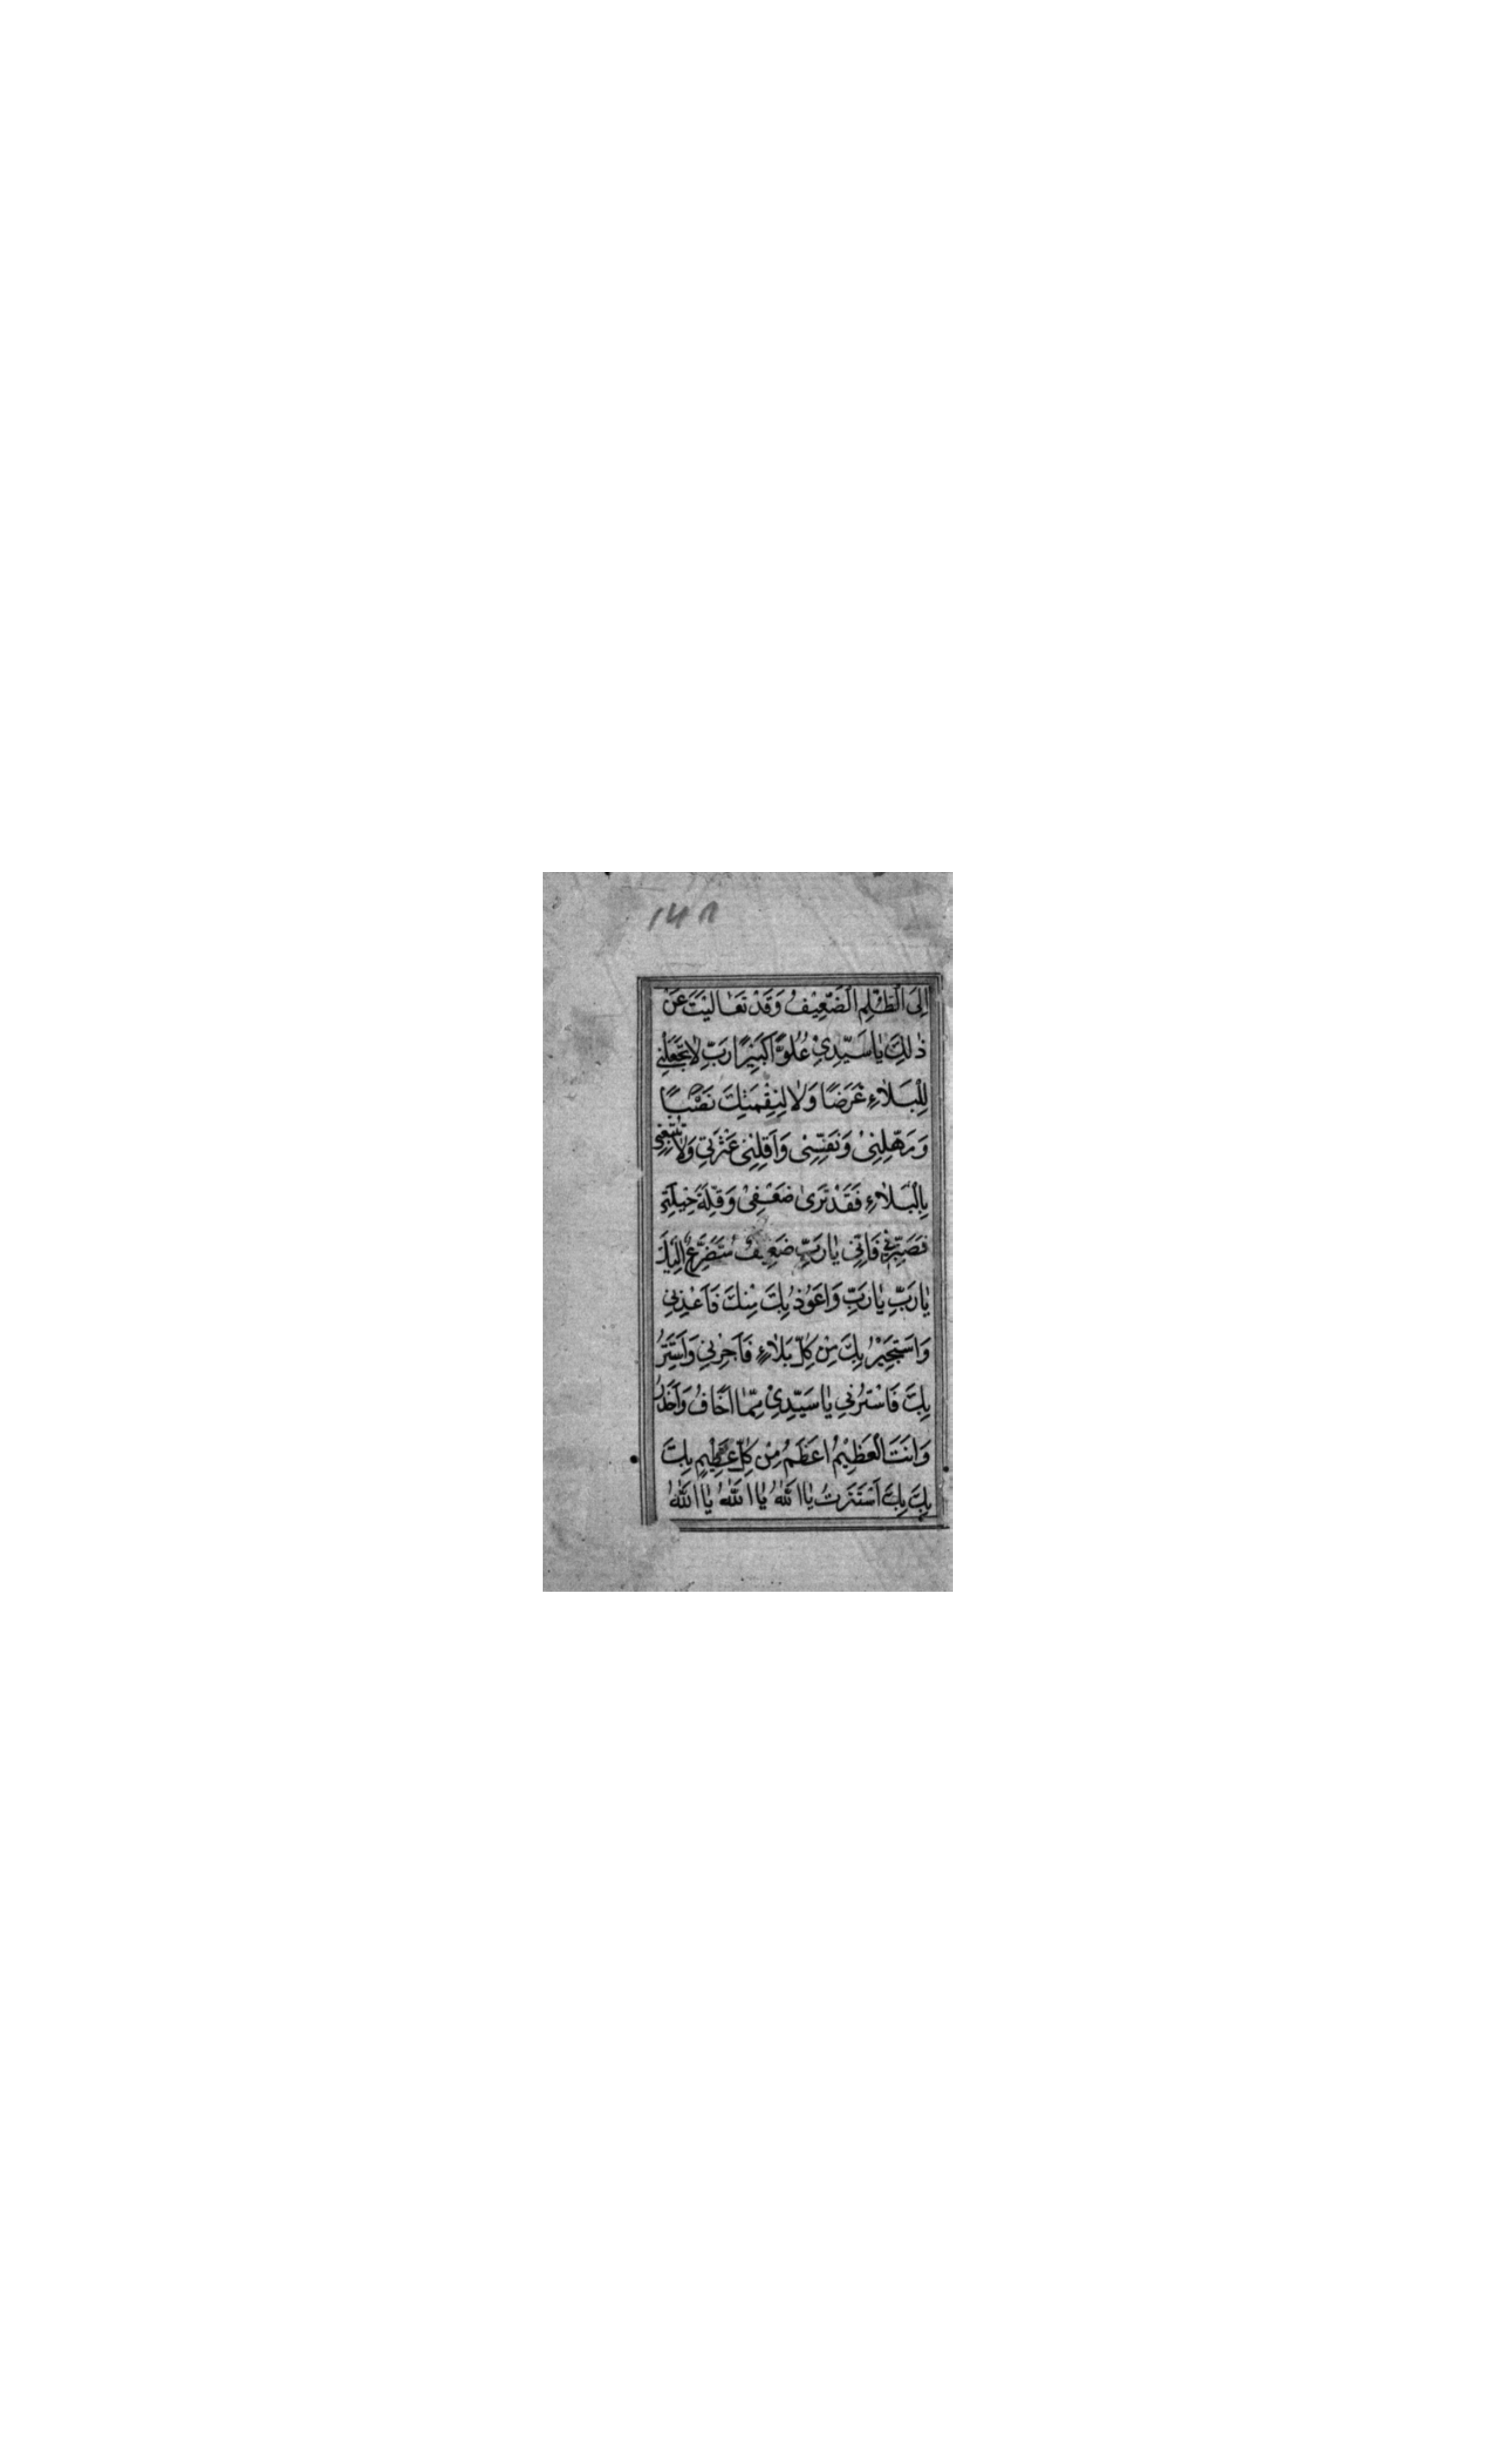 ۱۴۸
اِلَى الظُّلْمِ الضَّعِيْفُ وَقَدْ تَعَالَيْتَ عَنْ
ذٰلِكَ يَا سَيِّدِيْ عُلُوًّا كَبِيْرًا رَبِّ لَا تَجْعَلْنِيْ
لِلْبَلَاءِ غَرَضًا وَلَا لِنِقْمَتِكَ نَصَبًا
وَمَهِّلْنِيْ وَنَفِّسْنِيْ وَاَقِلْنِيْ عَثْرَتِيْ وَلَا تُتْبِعْنِيْ
بِالْبَلَاءِ فَقَدْ تَرٰى ضَعْفِيْ وَقِلَّةَ حِيْلَتِيْ
فَصَبِّرْنِيْ فَاِنِّيْ يَا رَبِّ ضَعِيْفٌ مُتَضَرِّعٌ اِلَيْكَ
يَا رَبِّ يَا رَبِّ وَاَعُوْذُ بِكَ مِنْكَ فَاَعِذْنِيْ
وَاَسْتَجِيْرُ بِكَ مِنْ كُلِّ بَلَاءٍ فَاَجِرْنِيْ وَاَسْتَتِرُ
بِكَ فَاسْتُرْنِيْ يَا سَيِّدِيْ مِمَّا اَخَافُ وَاَحْذَرُ
وَاَنْتَ الْعَظِيْمُ اَعْظَمُ مِنْ كُلِّ عَظِيْمٍ بِكَ
بِكَ بِكَ اَسْتَتَرْتُ يَا اَللّٰهُ يَا اَللّٰهُ يَا اَللّٰهُ